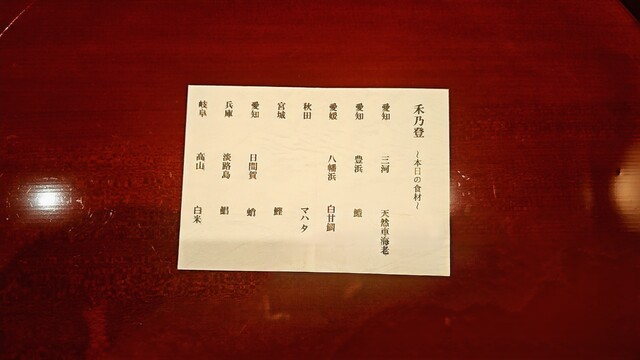 禾乃登 ～本日の食材～
愛知 三河 天然車海老
愛知 豊浜 鱧
愛媛 八幡浜 白甘鯛
秋田 マハタ
宮城 鰹
愛知 日間賀 蛸
兵庫 淡路島
岐阜 高山 白米